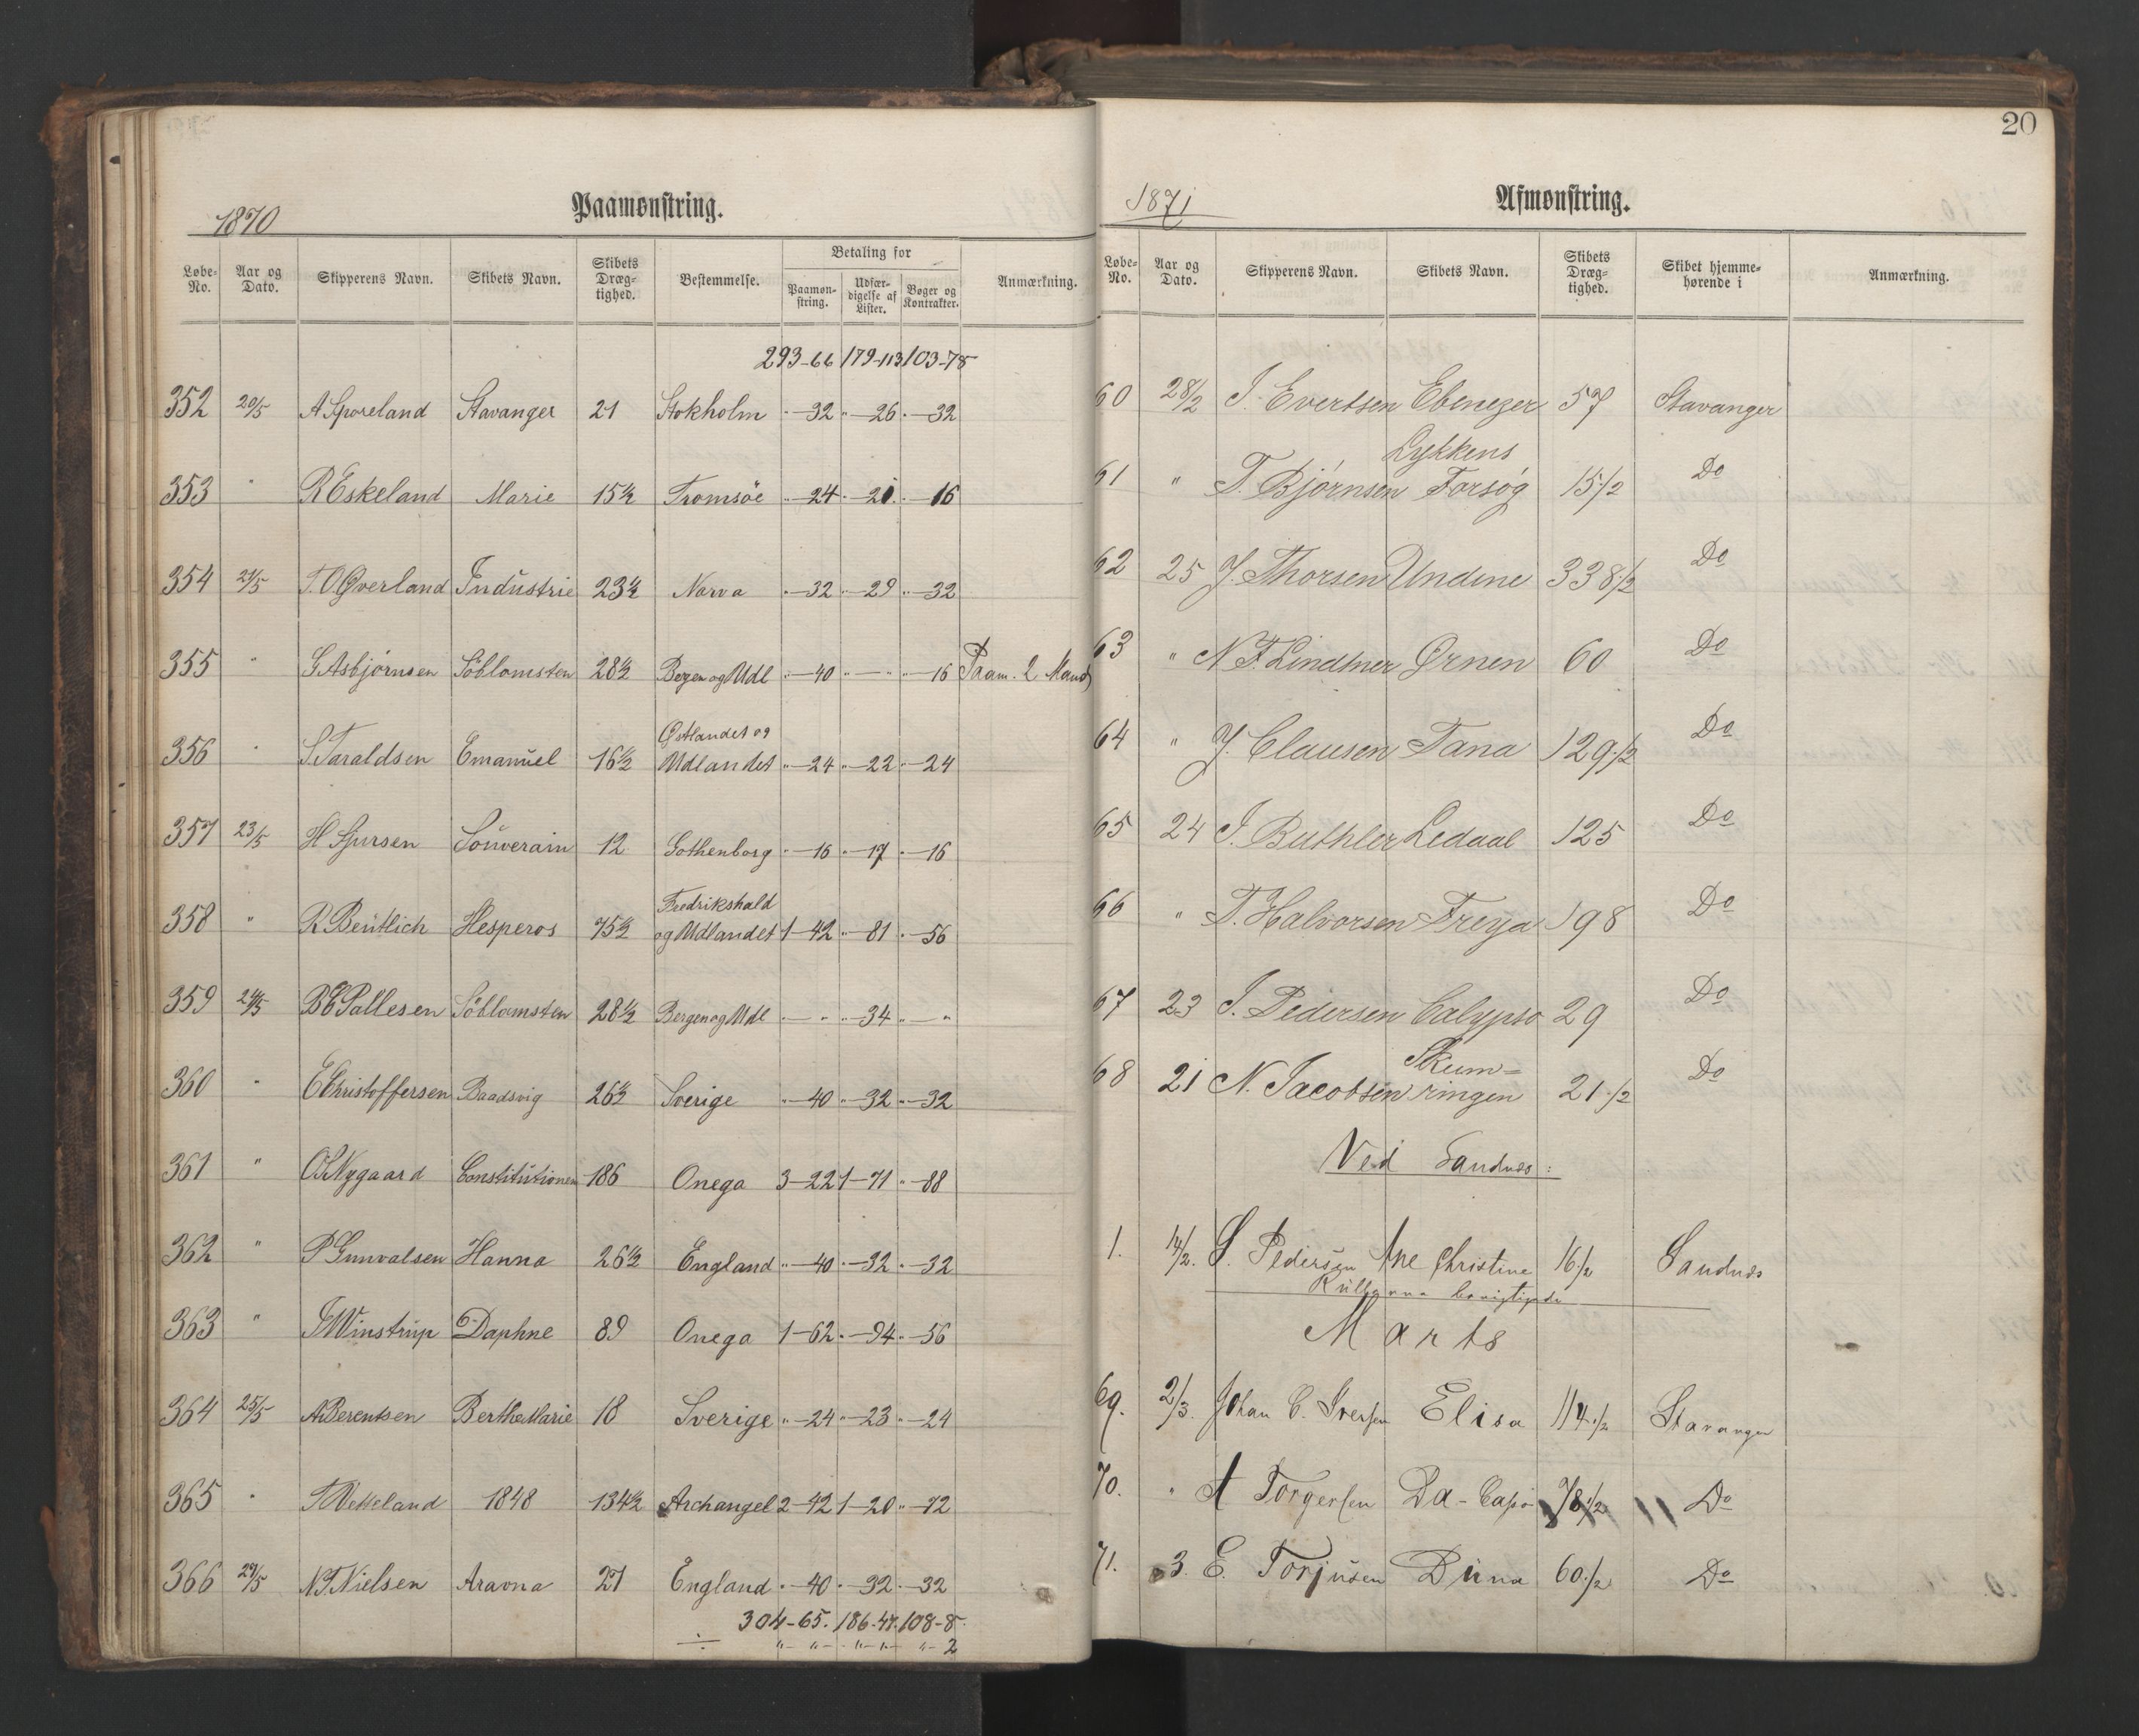 1870
Paamønstring.
Løbe-No. Aar og Dato. Skipperens Navn. Skibets Navn. Skibets Dræg-tighed. Bestemmelse. Betaling for Paamøn-string. Udfær-digelse af Lister. Bøger og Kontrakter. Anmærkning.
293-66 179-113 103-78
352 20/5 A Sporeland Stavanger 21 Stokholm "-32 "-26 "-32
353 " R Eskeland Marie 15½ Tromsöe "-24 "-21 "-16
354 21/5 T. O Øverland Industrie 23½ Narva "-32 "-29 "-32
355 " G Asbjørnsen Söblomsten 28½ Bergen og Udl "-40 "-" "-16 Paam. 2 Mand
356 " S Taraldsen Emanuel 16½ Østlandet og
Udlandet "-24 "-22 "-24
357 23/5 H Sjursen Souverain 12 Gothenborg "-16 "-17 "-16
358 " R Bentlich Hesperos 75½ Fredrikshald
og Udlandet 1-42 "-81 "-56
359 24/5 B E Pallesen Söblomsten 28½ Bergen og Udl "-" "-34 "-"
360 " E Christoffersen Baadsvig 26½ Sverige "-40 "-32 "-32
361 " Nygaard Constitutionen 186 Onega 3-22 1-71 "-88
362 " P Gunvalsen Hanna 26½ England "-40 "-32 "-32
363 " J Winstrup Daphne 89 Onega 1-62 "-94 "-56
364 25/5 A Berentsen Berthe Marie 18 Sverige "-24 "-23 "-24
365 " 1848 134½ Archangel 2-42 1-20 "-72
366 27/5 N T Nielsen Aravna 27 England "-40 "-32 "-32
304-65. 186-47. 108-8
÷ "-"- "-"- "-2
20
1871
Afmønstring.
Løbe-No. Aar og Dato. Skipperens Navn. Skibets Navn. Skibets Dræg-tighed. Skibet hjemme-hørende i Anmærkning.
60 28/2 J. Evertsen Ebenezer 57 Stavanger
61 " T. Bjørnsen Lykkens
Forsøg 15½ Do
62 25 J. Thorsen Undine 338½ Do
63 " N. F. Lindtner Ørnen 60 Do
64 " J. Clausen Tana 129½ Do
65 24 J. Buthler Ledaal 125 Do
66 " T. Halvorsen Freya 198 Do
67 23 J. Pedersen Calypso 29 Do
68 21 N. Jacobsen Skum=
ringen 21½ Do
Ved Sandnæs:
1. 14/2. S. Pedersen Ane Christine 16½ Sandnæs
Marts
69. 2/3. Johan C. Iversen Elisa 114½ Stavanger
70. " A Torgersen Da-Capo 78½ Do
71. 3. E. Torjusen Duna 60½ Do